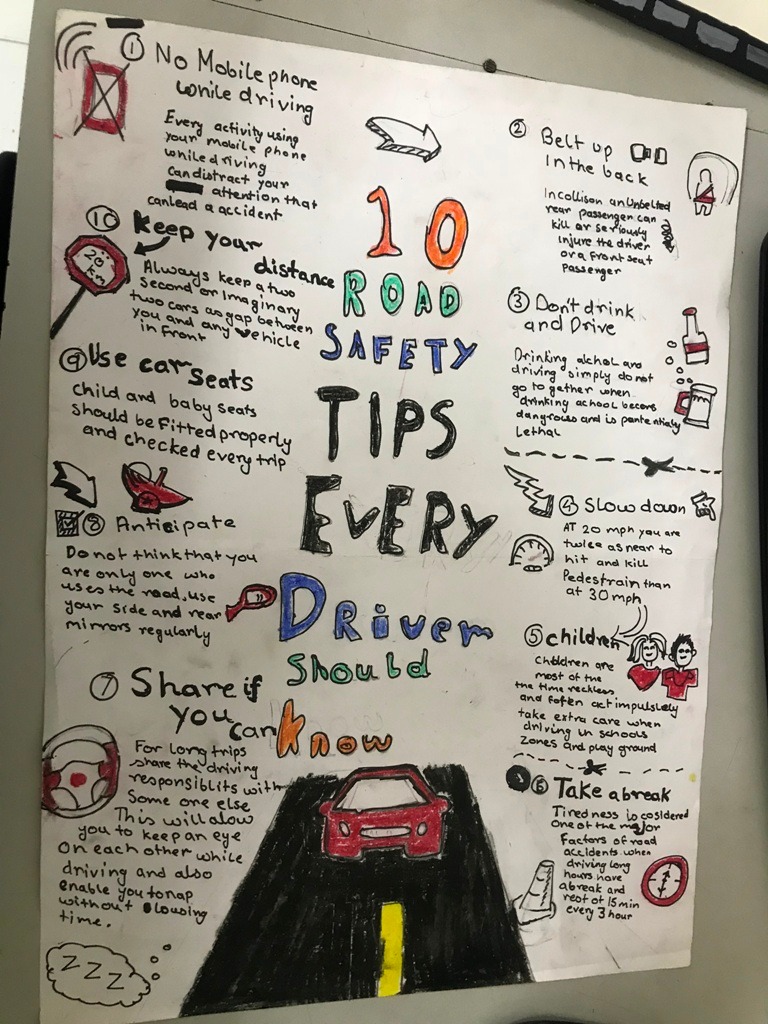 10
ROAD
SAFETY
TIPS
EVERY
Driver
Should
Know
① No Mobile phone
while driving
Every activity using
your mobile phone
while driving
can distract your
attention that
can lead a accident
② Belt up
in the back
In collison an unbelted
rear passenger can
kill or seriously
injure the driver
or a front seat
Passenger
③ Don't drink
and Drive
Drinking alchol and
driving simply do not
go to gether when
drinking achool becoms
dangrous and is pantentialy
Lethal
④ Slow down
AT 20 mph you are
twice as near to
hit and kill
Pedestrain than
at 30 mph
⑤ children
Children are
most of the
the time reckless
and foften act impulsively
take extra care when
driving in schools
Zones and play ground
⑥ Take a break
Tiredness is cosidered
one of the major
Factors of road
accidents when
driving long
hours have
a break and
rest of 15 min
every 3 hour
⑦ Share if
you can
For long trips
share the driving
responsiblits with
Some one else
This will alow
you to keep an eye
on each other while
driving and also
enable you to nap
without slowing
time.
ZZZ
⑧ Anticipate
Do not think that you
are only one who
uses the road, use
your side and rear
mirrors regularly
⑨ Use car seats
child and baby seats
should be fitted properly
and checked every trip
⑩ Keep your
distance
20
km
Always keep a two
second or imaginary
two cars as gap between
you and any vehicle
in front